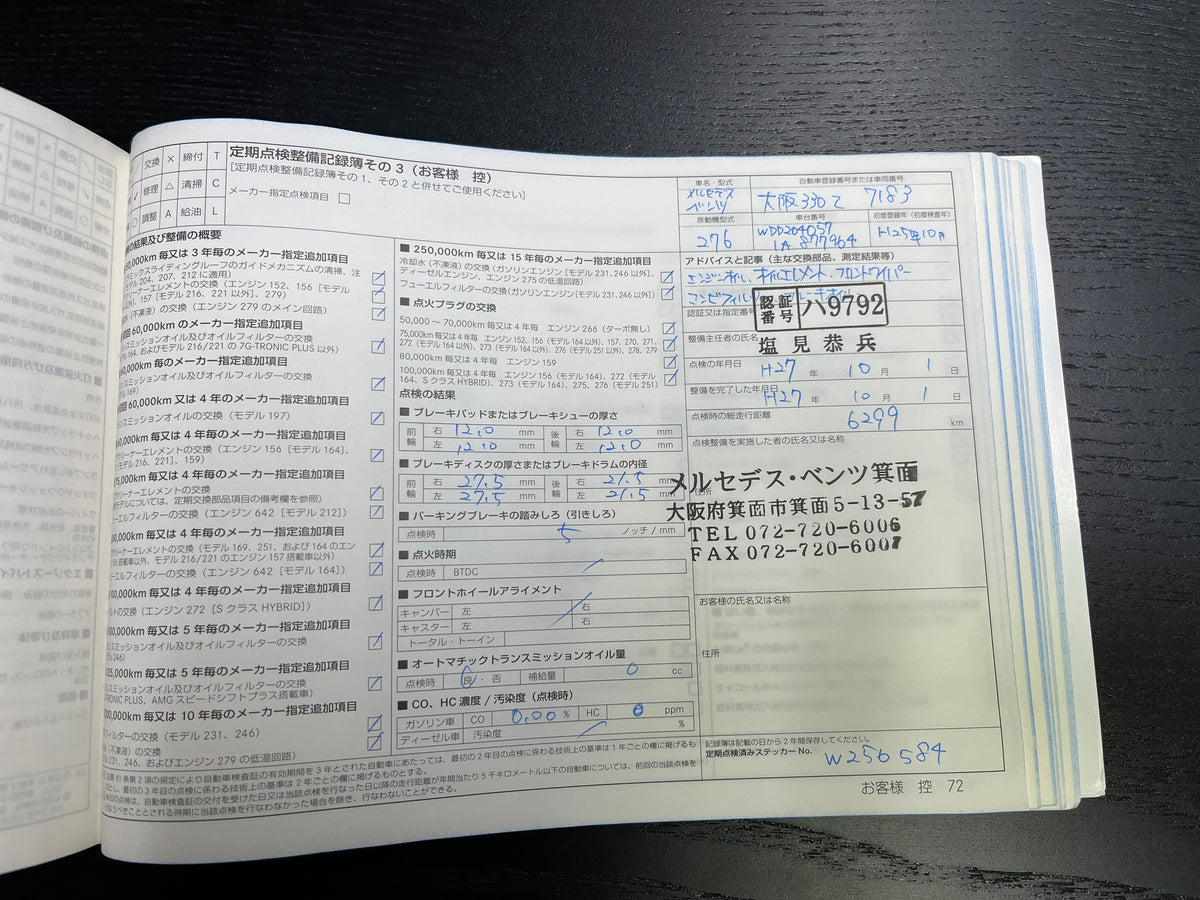 交換 × 締付 T
修理 △ 清掃 C
調整 A 給油 L
定期点検整備記録簿その3（お客様 控）
[定期点検整備記録簿その1、その2と併せてご使用ください]
メーカー指定点検項目 □
の結果及び整備の概要
0,000km 毎又は 3 年毎のメーカー指定追加項目
ミックスライディングルーフのガイドメカニズムの清掃、注
デル 204、207、212 に適用)
エレメントの交換 (エンジン 152、156 [モデル
]、157 [モデル 216、221 以外]、279)
(不凍液) の交換 (エンジン 279 のメイン回路)
初回 60,000km のメーカー指定追加項目
ンスミッションオイル及びオイルフィルターの交換
デル 164、およびモデル 216/221 の 7G-TRONIC PLUS 以外)
0,000km 毎のメーカー指定追加項目
ンスミッションオイル及びオイルフィルターの交換
169)
初回 60,000km 又は 4 年毎のメーカー指定追加項目
ンスミッションオイルの交換 (モデル 197)
60,000km 毎又は 4 年毎のメーカー指定追加項目
クリーナーエレメントの交換 (エンジン 156 [モデル 164]、
[モデル 216、221]、159)
75,000km 毎又は 4 年毎のメーカー指定追加項目
クリーナーエレメントの交換
モデルについては、定期交換部品項目の備考欄を参照)
ューエルフィルターの交換 (エンジン 642 [モデル 212])
80,000km 毎又は 4 年毎のメーカー指定追加項目
クリーナーエレメントの交換 (モデル 169、251、および 164 のエン
以外、モデル 216/221 のエンジン 157 搭載車以外)
ューエルフィルターの交換 (エンジン 642 [モデル 164])
100,000km 毎又は 4 年毎のメーカー指定追加項目
ルトの交換 (エンジン 272 [S クラス HYBRID])
100,000km 毎又は 5 年毎のメーカー指定追加項目
ンスミッションオイル及びオイルフィルターの交換
デル 246)
125,000km 毎又は 5 年毎のメーカー指定追加項目
ンスミッションオイル及びオイルフィルターの交換
TRONIC PLUS、AMG スピードシフトプラス搭載車)
200,000km 毎又は 10 年毎のメーカー指定追加項目
フィルターの交換 (モデル 231、246)
(不凍液) の交換
231、246、およびエンジン 279 の低温回路)
■ 250,000km 毎又は 15 年毎のメーカー指定追加項目
冷却水 (不凍液) の交換 (ガソリンエンジン [モデル 231、246 以外]、
ディーゼルエンジン、エンジン 275 の低温回路)
フューエルフィルターの交換(ガソリンエンジン[モデル 231、246 以外])
■ 点火プラグの交換
50,000 ～ 70,000km 毎又は 4 年毎 エンジン 266 (ターボ無し)
75,000km 毎又は 4 年毎 エンジン 152、156 (モデル 164 以外)、157、270、271、
272 (モデル 164 以外)、273 (モデル 164 以外)、276 (モデル 251 以外)、278、279
80,000km 毎又は 4 年毎 エンジン 159
100,000km 毎又は 4 年毎 エンジン 156 (モデル 164)、272 (モデル
164、S クラス HYBRID)、273 (モデル 164)、275、276 (モデル 251)
点検の結果
■ ブレーキパッドまたはブレーキシューの厚さ
前輪 右 12.0 mm 後輪 右 12.0 mm
左 12.0 mm 左 12.0 mm
■ ブレーキディスクの厚さまたはブレーキドラムの内径
前輪 右 27.5 mm 後輪 右 21.5 mm
左 27.5 mm 左 21.5 mm
■ パーキングブレーキの踏みしろ (引きしろ)
点検時 5 ノッチ / mm
■ 点火時期
点検時 BTDC
■ フロントホイールアライメント
キャンバー 左 右
キャスター 左 右
トータル・トーイン
■ オートマチックトランスミッションオイル量
点検時 良・否 補給量 0 cc
■ CO、HC 濃度 / 汚染度 (点検時)
ガソリン車 CO 0.00 % HC 0 ppm
ディーゼル車 汚染度 %
車名・型式
メルセデス
ベンツ
自動車登録番号または車両番号
大阪 330 て 7183
原動機型式
276
車台番号
WDD204057
1A 877964
初度登録年(初度検査年)
H25年10月
アドバイスと記事 (主な交換部品、測定結果等)
エンジンオイル、オイルエレメント、フロントワイパー
認証又は指定番号
認証番号 ハ9792
整備主任者の氏名
塩見恭兵
点検の年月日 H27 年 10 月 1 日
整備を完了した年月日 H27 年 10 月 1 日
点検時の総走行距離 6299 km
点検整備を実施した者の氏名又は名称
メルセデス・ベンツ箕面
住所
大阪府箕面市箕面5-13-57
TEL 072-720-6006
FAX 072-720-6007
お客様の氏名又は名称
住所
記録簿は記載の日から 2 年間保存してください。
定期点検済みステッカー No. W256584
お客様 控 72